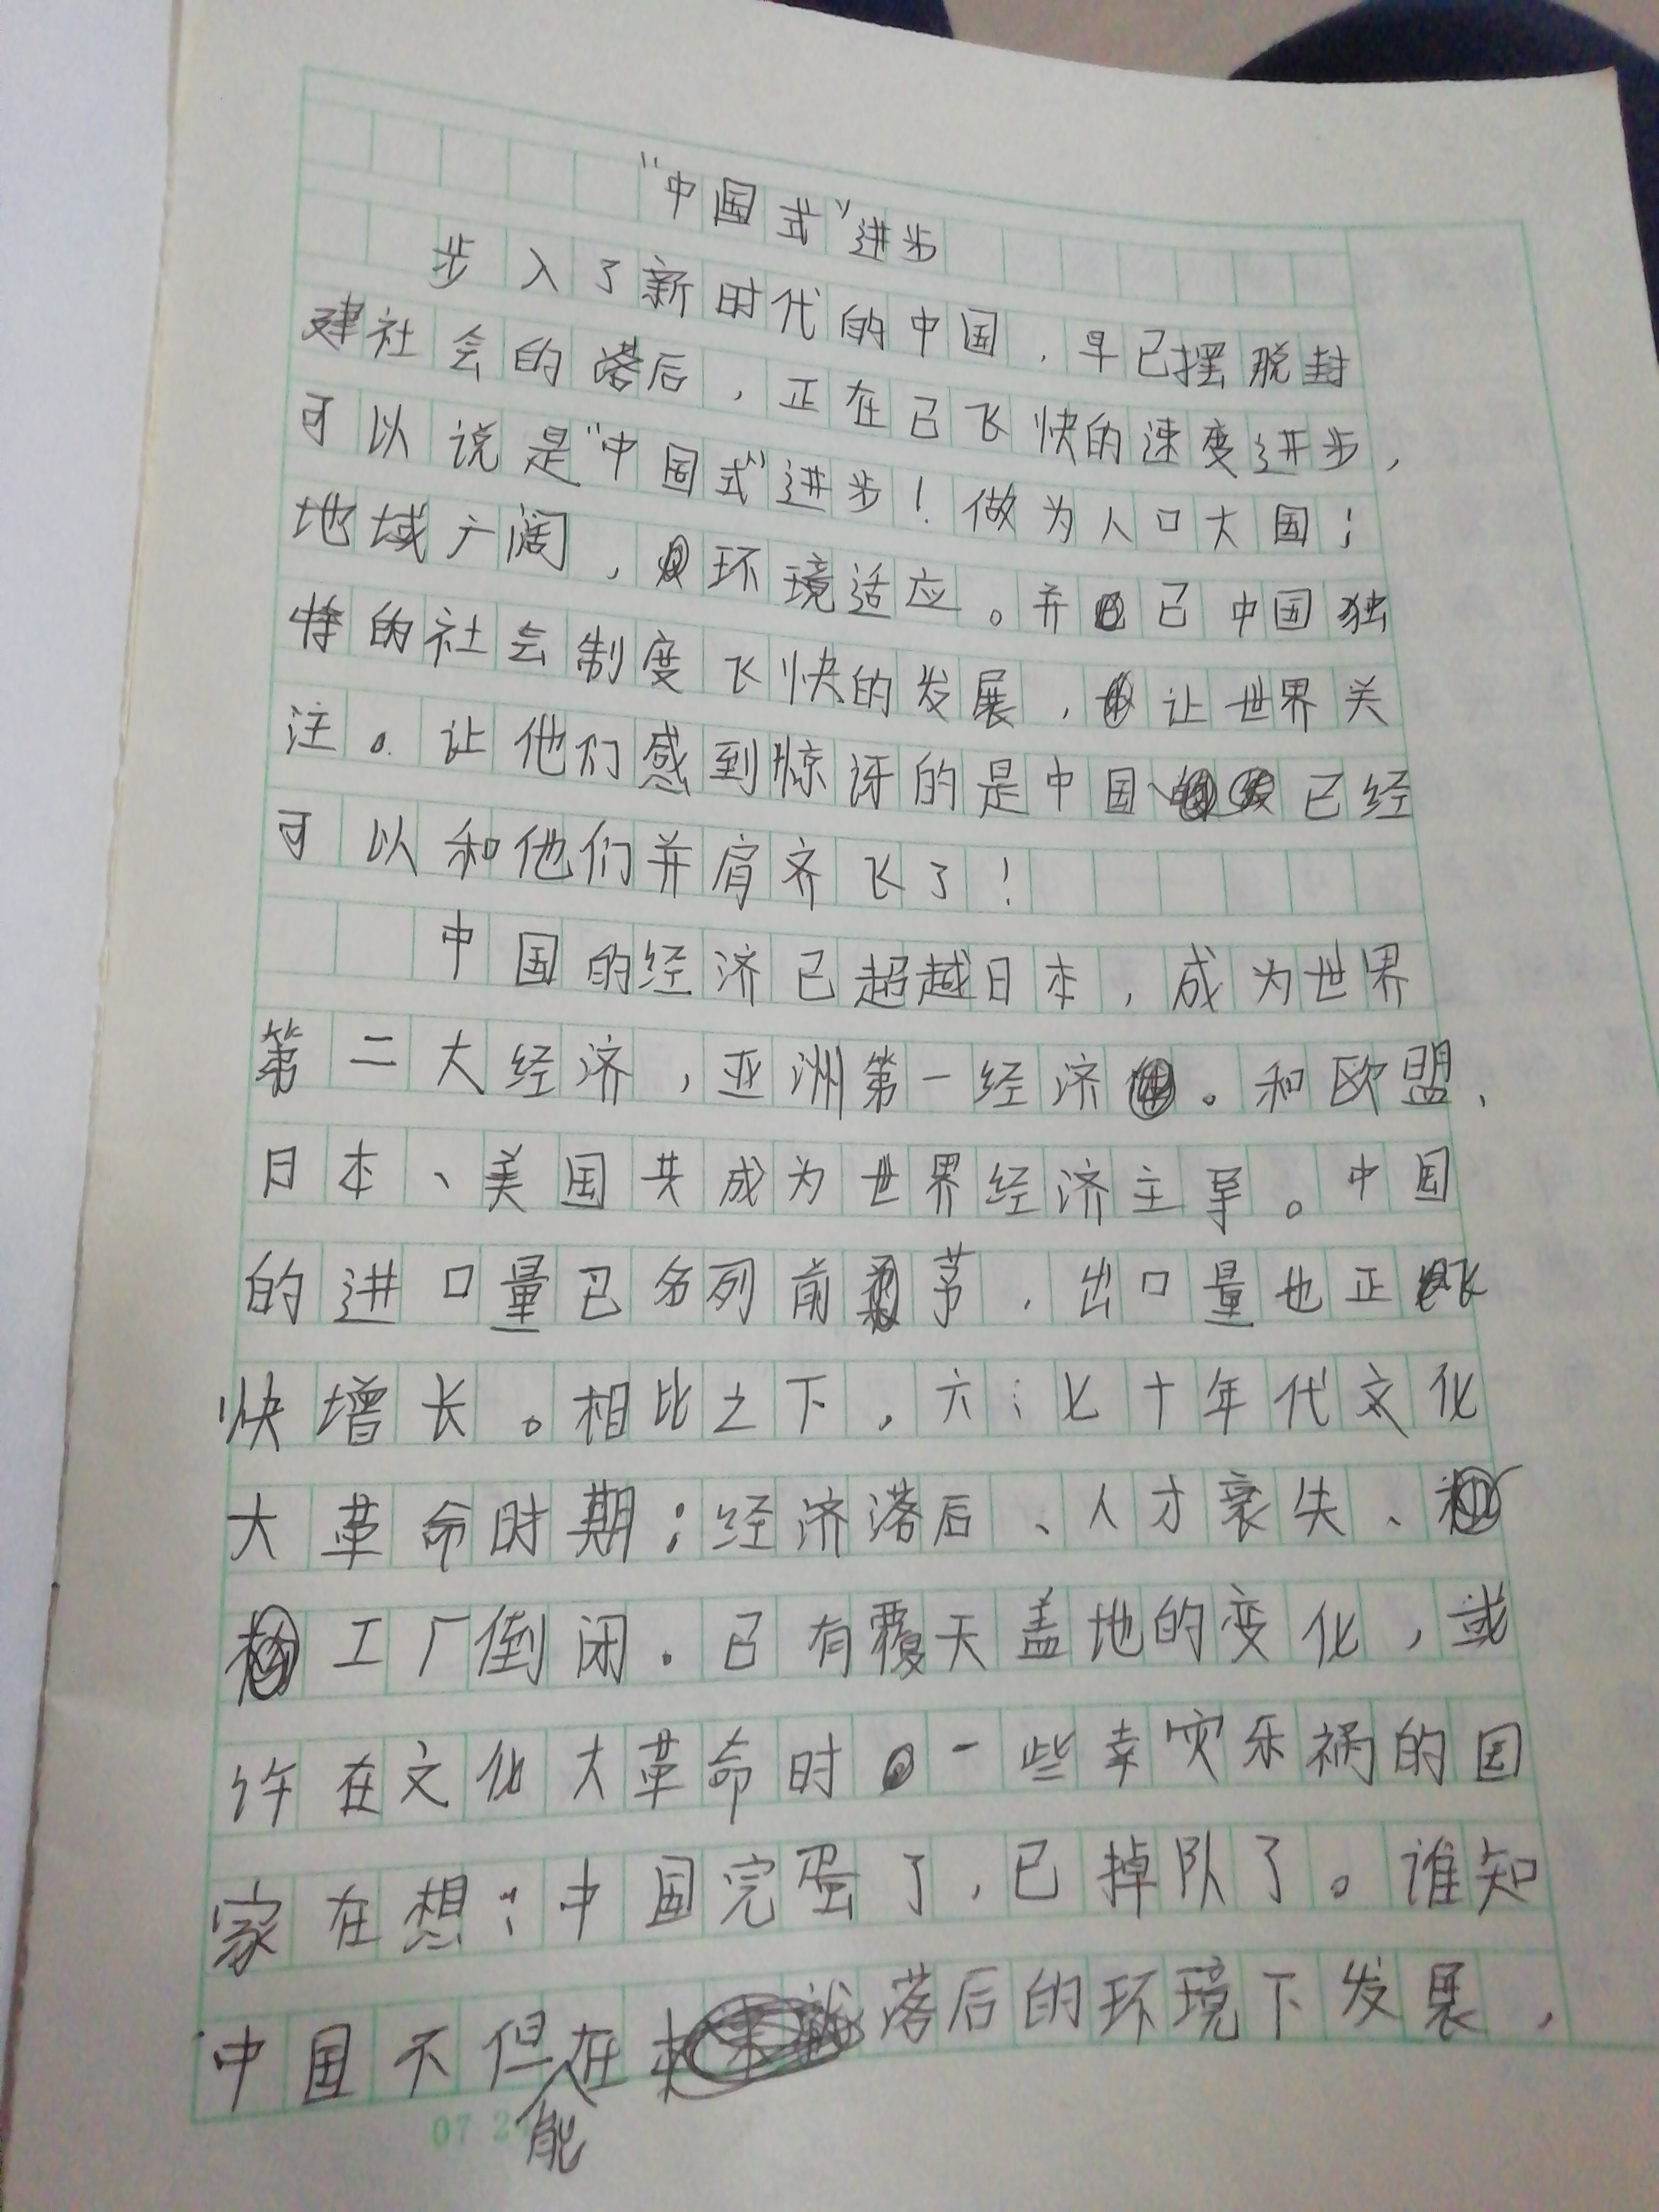 “中国式”进步
步入了新时代的中国，早已摆脱封
建社会的落后，正在已飞快的速度进步，
可以说是“中国式”进步！做为人口大国；
地域广阔，环境适应。并已中国独
特的社会制度飞快的发展，让世界关
注。让他们感到惊讶的是中国已经
可以和他们并肩齐飞了！
中国的经济已超越日本，成为世界
第二大经济，亚洲第一经济。和欧盟、
日本、美国共成为世界经济主导。中国
的进口量已名列前茅，出口量也正飞
快增长。相比之下，六；七十年代文化
大革命时期；经济落后、人才衰失、
工厂倒闭．已有覆天盖地的变化，或
许在文化大革命时一些幸灾乐祸的国
家在想：中国完蛋了，已掉队了。谁知
中国不但能在落后的环境下发展，
07 2